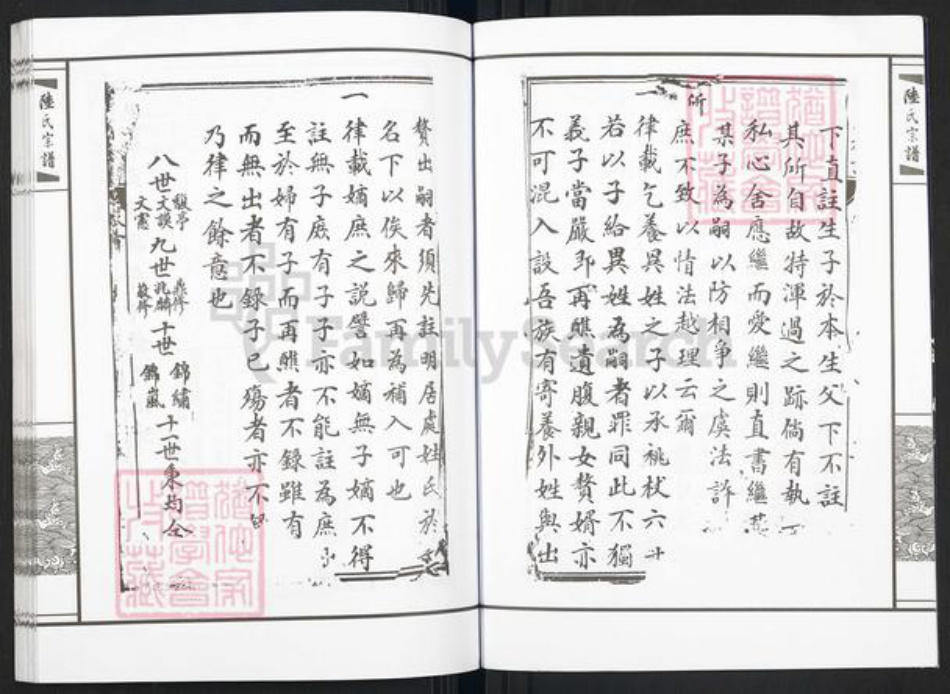 陸氏宗譜
下直註生子於本生父下不註
其所自故特渾過之跡倘有執
私心舍應繼而愛繼則直書繼
某子為嗣以防相爭之虞法許
所
庶不致以情法越理云爾
一律載乞養異姓之子以承祧杖六十
若以子給異姓為嗣者罪同此不獨
義子當嚴即再醮遺腹親女贅婿亦
不可混入設吾族有寄養外姓與出
贅出嗣者須先註明居處姓氏於
名下以俟來歸再為補入可也
一律載嫡庶之說譬如嫡無子嫡不得
註無子庶有子子亦不能註為庶出
至於婦有子而再醮者不錄雖有
而無出者不錄子已殤者亦不
乃律之餘意也
八世 馥亭 文謨 文憲 九世 兆麟 十世 錦繡 錦嵐 十一世秉均仝
陸氏宗譜
FamilySearch